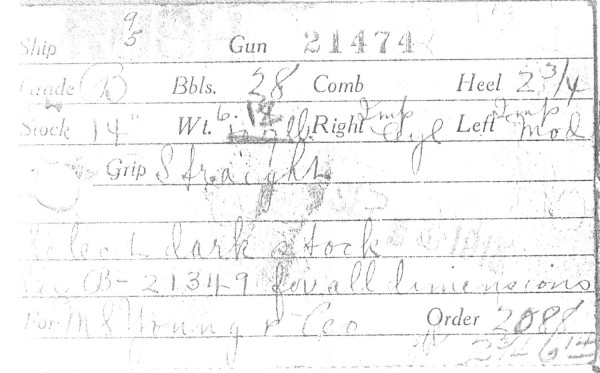 Ship 9/5 Gun 21474
Grade B Bbls. 28 Comb Heel 2 3/4
Stock 14" Wt. 6. 12 lb. Right Imp Cyl Left Imp Mod
Grip Straight
Select dark stock
See B-21349 for all dimensions
For Young & Co Order